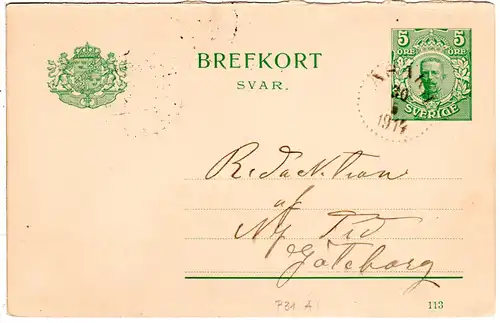 BREFKORT
SVAR.
5 5
ÖRE ÖRE
SVERIGE
20
1914
Redaktion
af
Ny Tid
Göteborg
P31 A
113